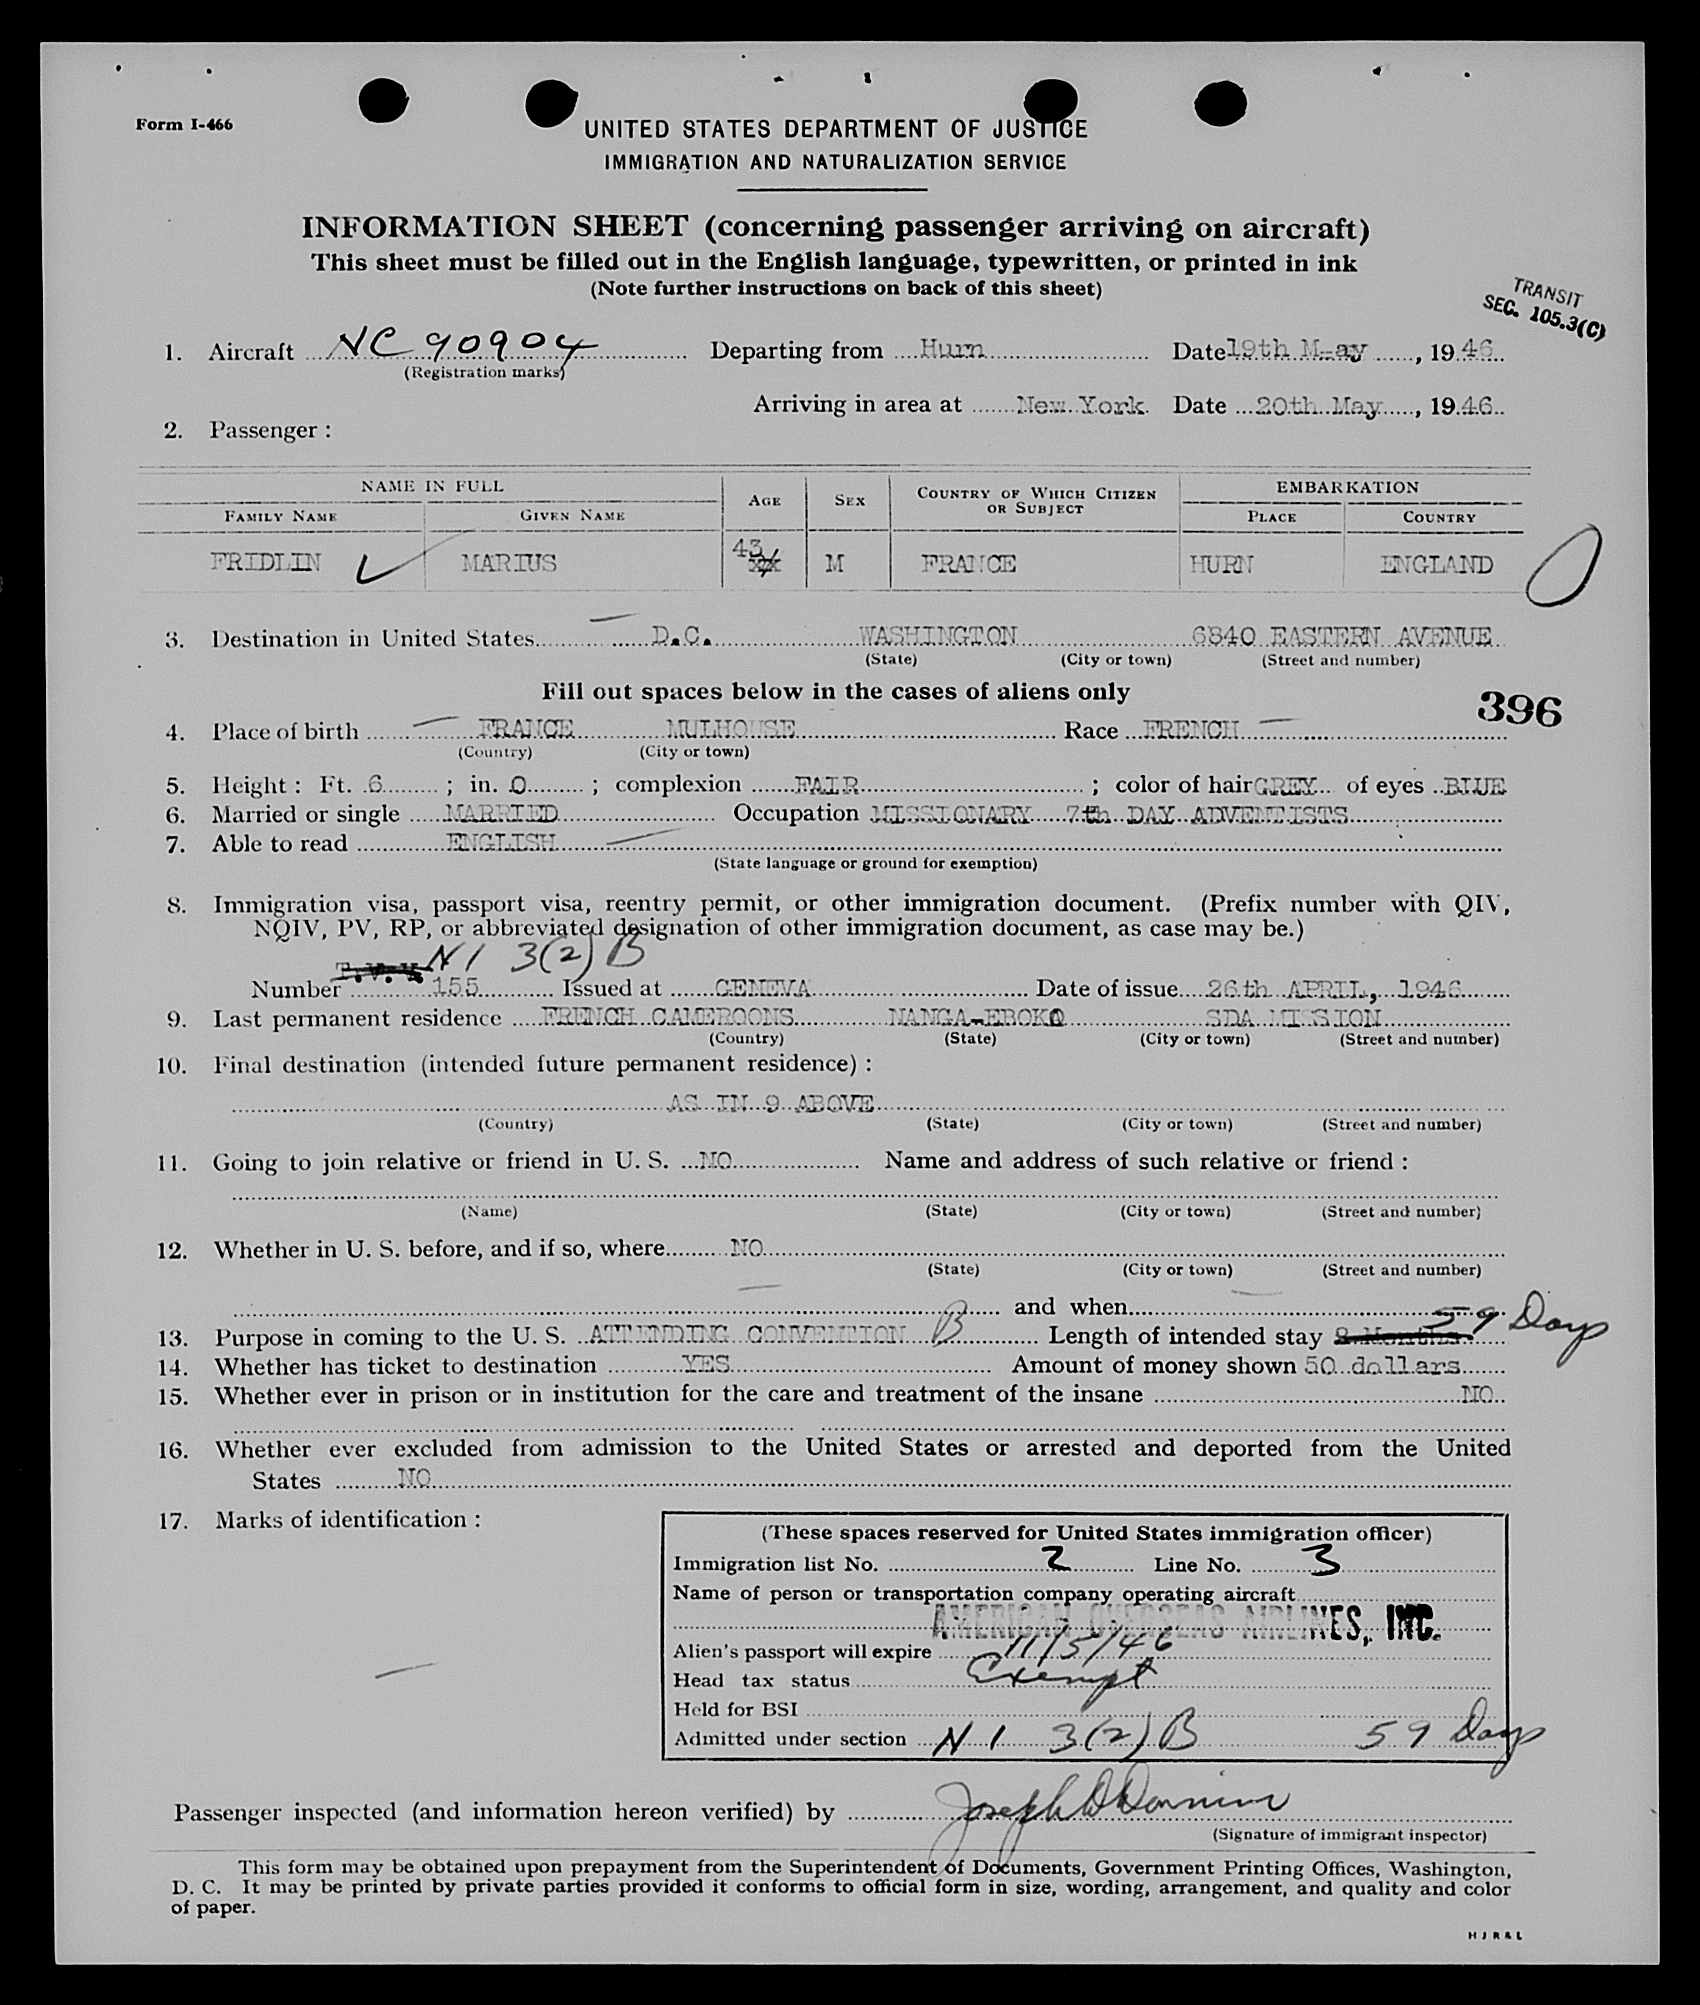 Form I-466
UNITED STATES DEPARTMENT OF JUSTICE
IMMIGRATION AND NATURALIZATION SERVICE
INFORMATION SHEET (concerning passenger arriving on aircraft)
This sheet must be filled out in the English language, typewritten, or printed in ink
(Note further instructions on back of this sheet)
TRANSIT
SEC. 105.3(C)
1. Aircraft NC 90904 Departing from Hurn Date 19th May, 1946
(Registration marks)
Arriving in area at New York Date 20th May, 1946
2. Passenger :
NAME IN FULL AGE SEX COUNTRY OF WHICH CITIZEN OR SUBJECT EMBARKATION
FAMILY NAME GIVEN NAME PLACE COUNTRY
FRIDLIN MARIUS 43 M FRANCE HURN ENGLAND
3. Destination in United States D.C. WASHINGTON 6840 EASTERN AVENUE
(State) (City or town) (Street and number)
Fill out spaces below in the cases of aliens only
396
4. Place of birth FRANCE MULHOUSE Race FRENCH
(Country) (City or town)
5. Height : Ft. 6 ; in. 0 ; complexion FAIR ; color of hair GREY of eyes BLUE
6. Married or single MARRIED Occupation MISSIONARY 7th DAY ADVENTISTS
7. Able to read ENGLISH
(State language or ground for exemption)
8. Immigration visa, passport visa, reentry permit, or other immigration document. (Prefix number with QIV,
NQIV, PV, RP, or abbreviated designation of other immigration document, as case may be.)
N1 3(2) B
Number 155 Issued at GENEVA Date of issue 26th APRIL, 1946
9. Last permanent residence FRENCH CAMEROONS NANGA-EBOKO SDA MISSION
(Country) (State) (City or town) (Street and number)
10. Final destination (intended future permanent residence) :
AS IN 9 ABOVE
(Country) (State) (City or town) (Street and number)
11. Going to join relative or friend in U. S. NO Name and address of such relative or friend :
(Name) (State) (City or town) (Street and number)
12. Whether in U. S. before, and if so, where NO
(State) (City or town) (Street and number)
and when
13. Purpose in coming to the U. S. ATTENDING CONVENTION B Length of intended stay 59 Days
14. Whether has ticket to destination YES Amount of money shown 50 dollars
15. Whether ever in prison or in institution for the care and treatment of the insane NO
16. Whether ever excluded from admission to the United States or arrested and deported from the United
States NO
17. Marks of identification :
(These spaces reserved for United States immigration officer)
Immigration list No. 2 Line No. 3
Name of person or transportation company operating aircraft
AMERICAN OVERSEAS AIRLINES, INC.
Alien's passport will expire 11/5/46
Head tax status Exempt
Held for BSI
Admitted under section N1 3(2) B 59 Days
Passenger inspected (and information hereon verified) by Joseph
(Signature of immigrant inspector)
This form may be obtained upon prepayment from the Superintendent of Documents, Government Printing Offices, Washington,
D. C. It may be printed by private parties provided it conforms to official form in size, wording, arrangement, and quality and color
of paper.
H J R & L